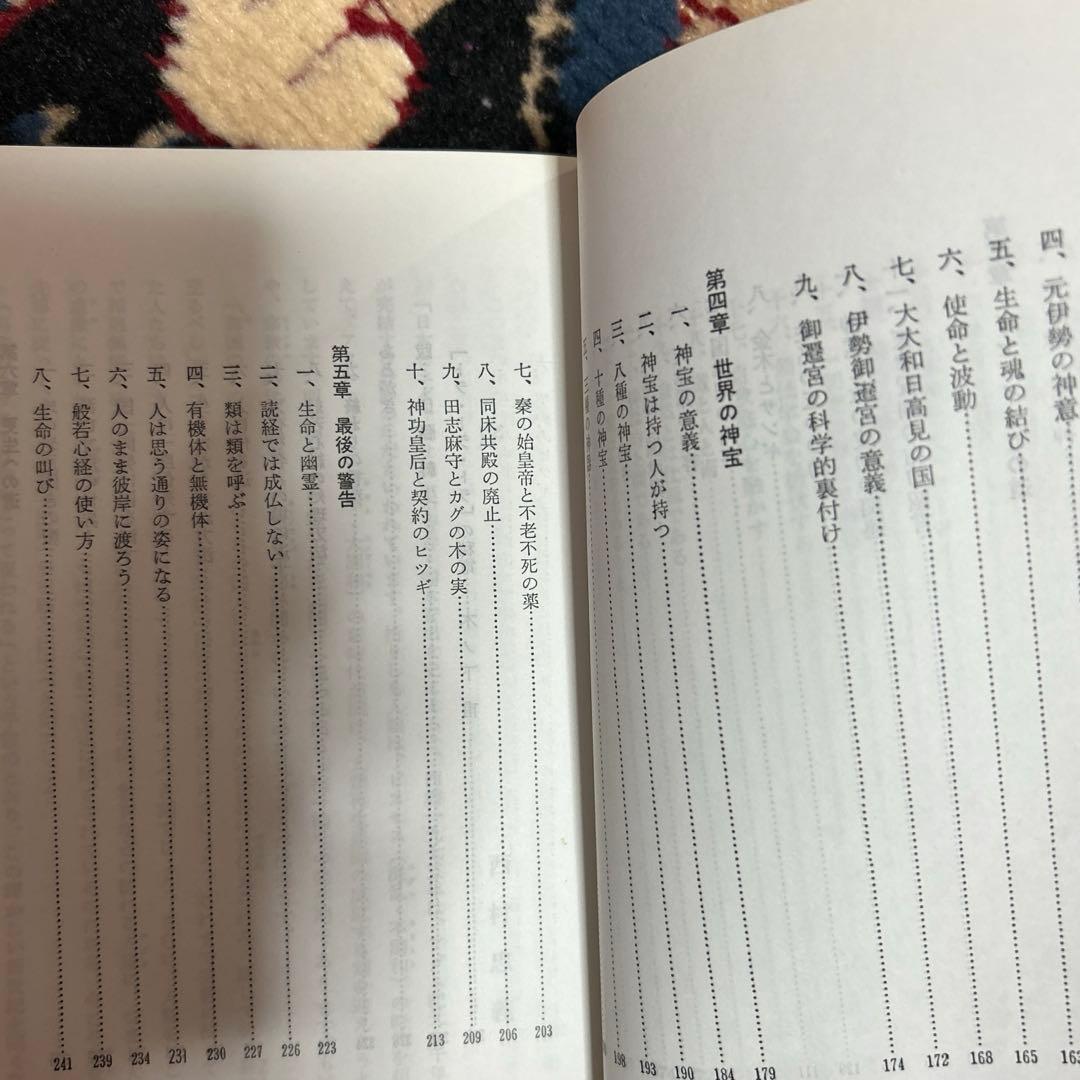 四、元伊勢の神意
五、生命と魂の結び………163
六、使命と波動………165
七、大大和日高見の国………168
八、伊勢御遷宮の意義………172
九、御遷宮の科学的裏付け………174
第四章　世界の神宝
一、神宝の意義………179
二、神宝は持つ人が持つ………184
三、八種の神宝………190
四、十種の神宝………193
五、三種の神器………198
七、秦の始皇帝と不老不死の薬………203
八、同床共殿の廃止………206
九、田志麻守とカグの木の実………209
十、神功皇后と契約のヒツギ………213
第五章　最後の警告
一、生命と幽霊………223
二、読経では成仏しない………226
三、類は類を呼ぶ………227
四、有機体と無機体………230
五、人は思う通りの姿になる………231
六、人のまま彼岸に渡ろう………234
七、般若心経の使い方………239
八、生命の叫び………241